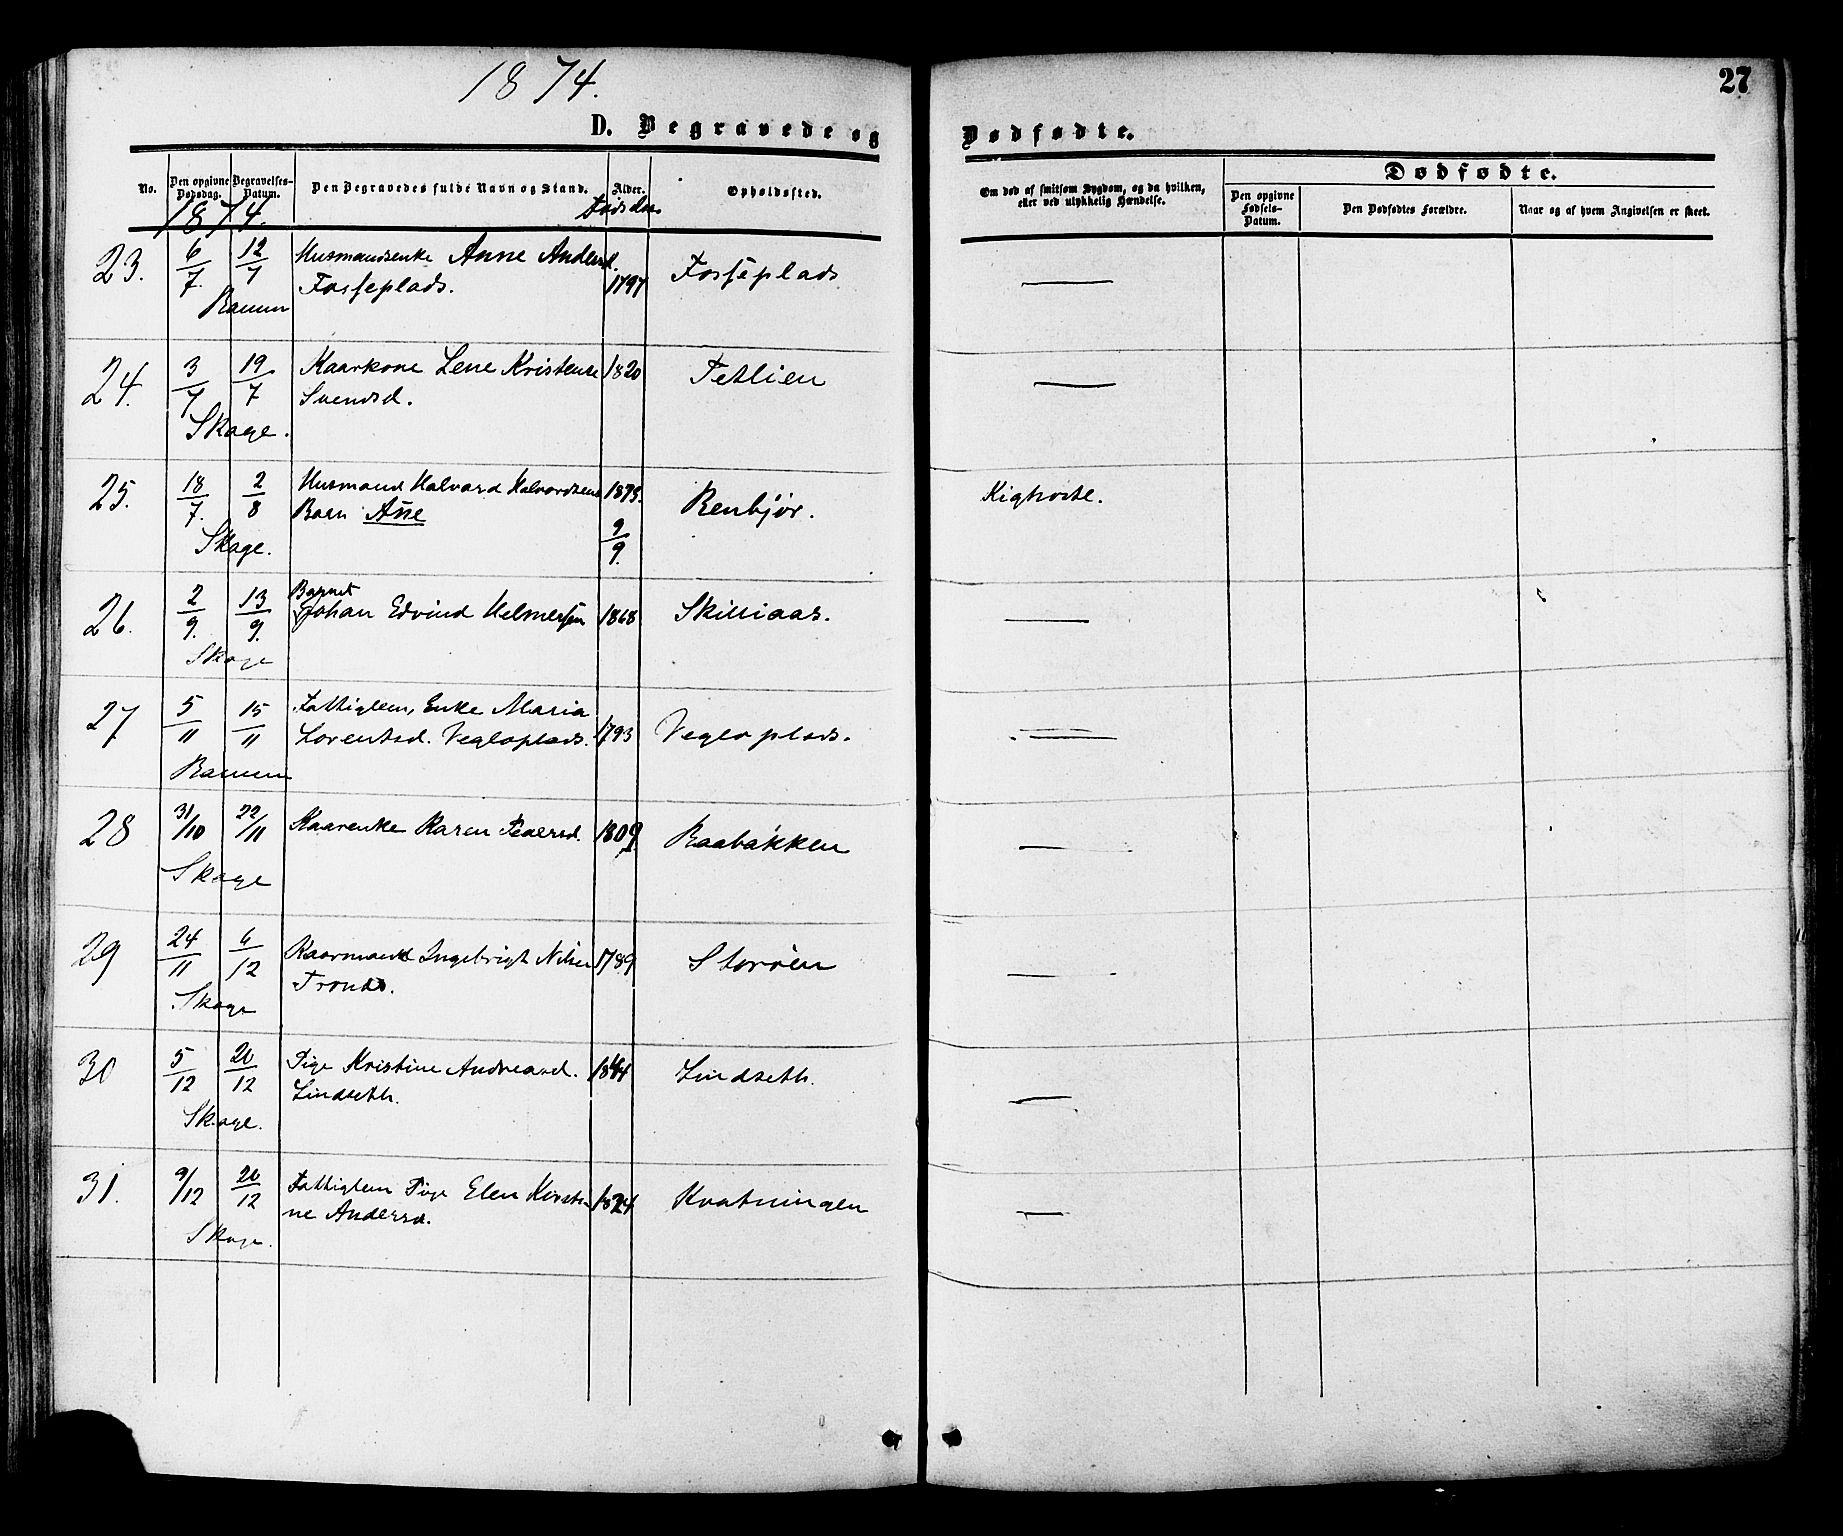 1874.
27
D. Begravede og Dødfødte.
No.
Den opgivne Dødsdag.
Begravelses-Datum.
Den Begravedes fulde Navn og Stand.
Alder.
Opholdssted.
Om død af smitsom Sygdom, og da hvilken, eller ved ulykkelig Hændelse.
Dødfødte.
Den opgivne Fødsels-Datum.
Den Dødfødtes Forældre.
Naar og af hvem Angivelsen er skeet.
1874.
23. 6/7. 12/7 Husmandsenke Anne Andersd. 1797 Fosseplads —
Fosseplads.
Ranem
24. 3/7 19/7 Kaarkone Lene Kristense 1820 Fetlien —
Svendsd.
Skage.
25. 18/7. 2/8 Husmand Halvard Halvardsens 1873. Renbjør. Kighoste.
Barn Ane 9/9.
Skage.
Barnet
26. 2/9. 13/9. Johan Edvind Helmersen 1868 Skilliaas. —
Skage
27 5/11 15/11 Fattiglem, Enke Maria
Lorentsd. Vegloplads. 1793 Vegloplads. —
Ranem
28 31/10 22/11 Kaarenke Karen Pedersd. 1809 Raabakken —
Skage
29 24/11 6/12 Kaarmand Ingebrigt Nilsen 1789 Storøen —
Skage
30 5/12 20/12 Pige Kristine Andreasd. 1844 Lindseth. —
Lindseth.
Skage.
31. 9/12 20/12 Fattiglem Pige Elen Kirsti- 1824 Kvatningen —
ne Andersd.
Skage.